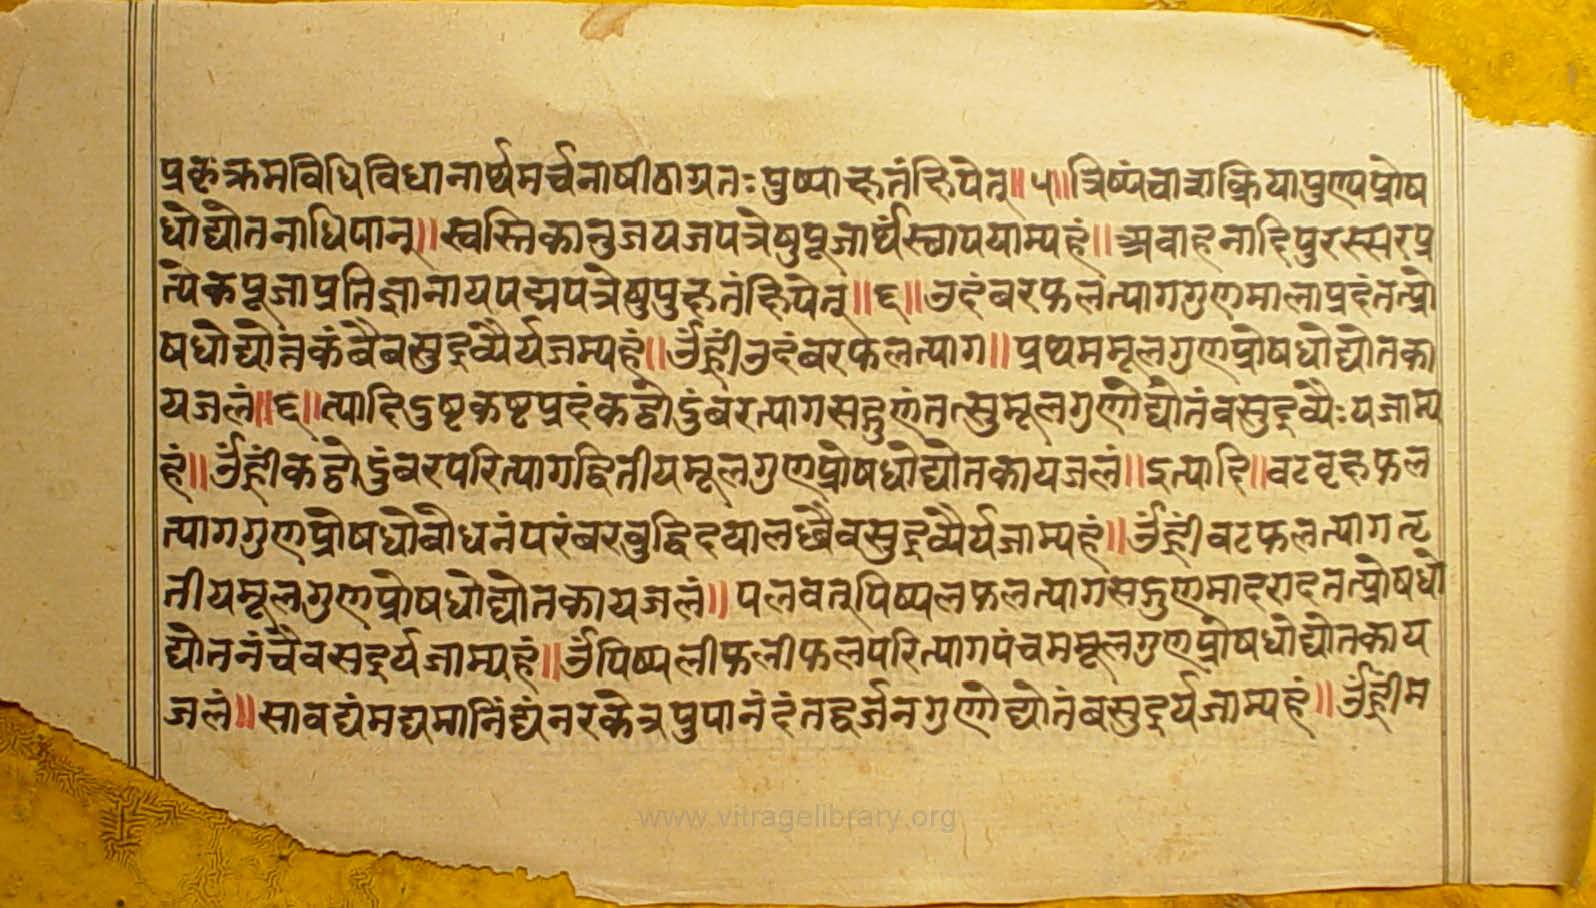 प्रकृक्रमविधिविधानार्थमर्चनाषीठाग्रतःपुष्पाक्षतंक्षिपेत्॥५॥त्रिष्पंचाद्यक्रियापुण्यप्रोष
धोद्योतनाधिपान्॥स्वस्तिकानुजयजपत्रेषुपूजार्थस्थापयाम्यहं॥अवाहनादिपुरस्सरप्र
त्येकपूजाप्रतिज्ञानायपद्मपत्रेषुपुक्षतंक्षिपेत्॥६॥उदंबरफलत्यागगुणमालाप्रदंतत्प्रो
षधोद्योत्तकंवैबसुद्रव्यैर्यजम्यहं॥ॐह्रींउदंबरफलत्याग॥प्रथममूलगुणप्रोषधोद्योतका
यजलं॥६॥त्यादिऽष्टकष्टप्रदंकठोडुंबरत्यागसद्गुणंतत्सुमूलगुणोद्योतंवसुद्रव्यैःयजाम्य
हं॥ॐह्रींकठोडुंबरपरित्यागद्वितीयमूलगुणप्रोषधोद्योतकायजलं॥इत्यादि॥वटवृक्षफल
त्यागगुणप्रोषधोवोधनंपरंबरवुद्विदयालब्धैवसुद्रव्यैर्यजाम्यहं॥ॐह्रींवटफलत्यागतृ
तीयमूलगुणप्रोषधोद्योतकायजलं॥पलवत्पिष्पलफलत्यागसद्गुणमादरादतत्प्रोषधो
द्योतनंचैवसद्र्यजाम्यहं॥ॐपिष्पलीफलीफलपरित्यागपंचममूलगुणप्रोषधोद्योतकाय
जलं॥सावद्यंमद्यमानिंद्यंनरकेत्रपुपानंदंतद्वर्जनगुणोद्योतंबसुद्र्यजाम्यहं॥ॐह्रींम
www.vitragelibrary.org